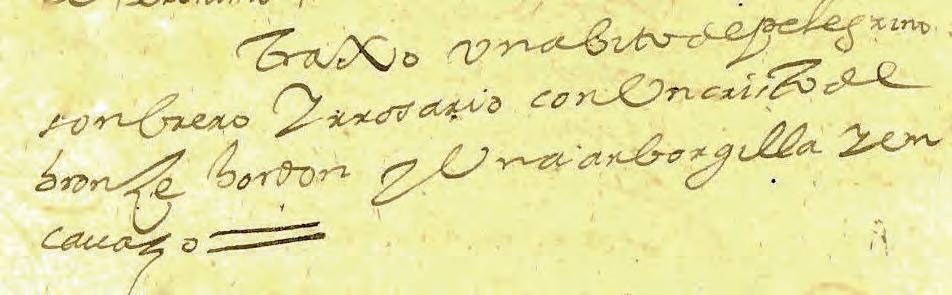 traxo un abito de pelegrino
sonbrero y rrosario con un cristo de
bronze bordon y una arborgilla y en
cauazo